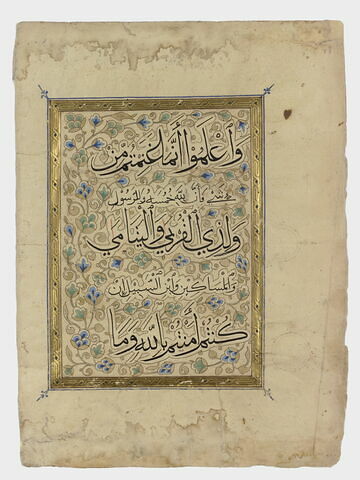 وَاعْلَمُوا أَنَّمَا غَنِمْتُمْ مِنْ
شَيْءٍ فَأَنَّ لِلَّهِ خُمُسَهُ وَلِلرَّسُولِ
وَلِذِي الْقُرْبَى وَالْيَتَامَى
وَالْمَسَاكِينِ وَابْنِ السَّبِيلِ إِنْ
كُنْتُمْ آمَنْتُمْ بِاللَّهِ وَمَا